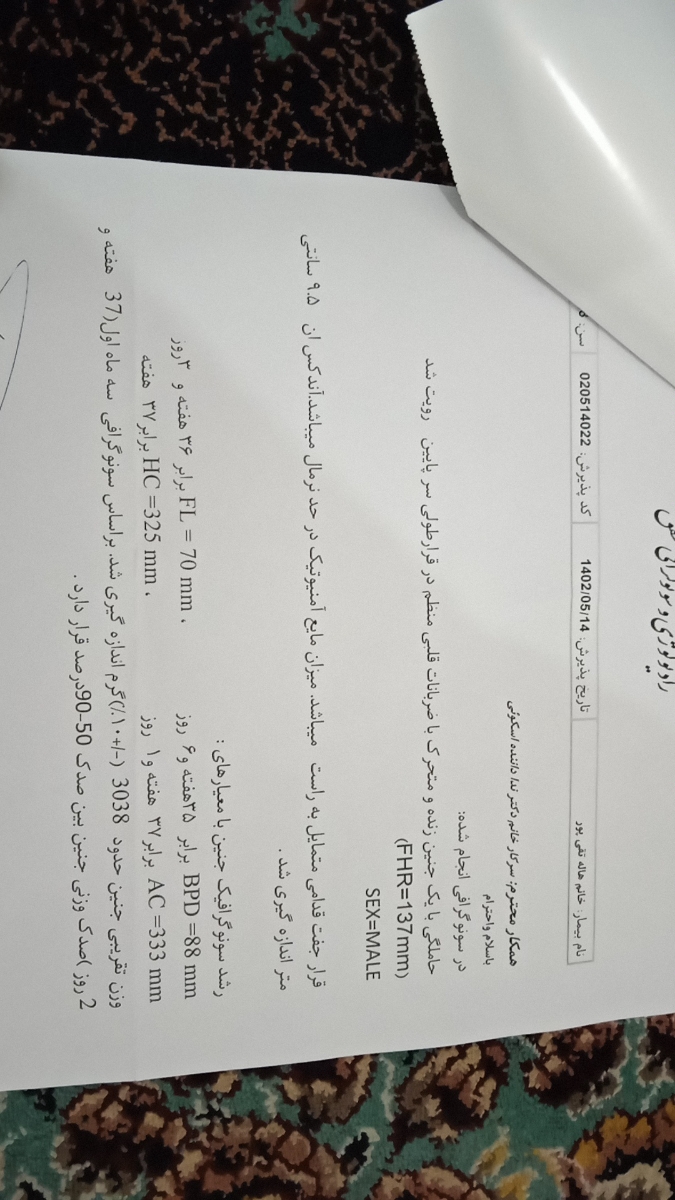 رادیولوژی و سونوگرافی
نام بیمار: خانم هاله تقی پور تاریخ پذیرش: 1402/05/14 کد پذیرش: 020514022 سن:
همکار محترم: سرکار خانم دکتر ندا داننده اسکوئی
باسلام واحترام
در سونوگرافی انجام شده:
حاملگی با یک جنین زنده و متحرک با ضربانات قلبی منظم در قرارطولی سر پایین رویت شد
(FHR=137mm)
SEX=MALE
قرار جفت قدامی متمایل به راست میباشد. میزان مایع آمنیوتیک در حد نرمال میباشد.آندکس ان ۹.۵ سانتی
متر اندازه گیری شد .
رشد سونوگرافیک جنین با معیارهای :
BPD =88 mm برابر ۳۵هفته و ۶ روز FL = 70 mm . برابر ۳۶ هفته و ۳روز
AC =333 mm برابر ۳۷ هفته و ۱ روز HC =325 mm . برابر ۳۷ هفته
وزن تقریبی جنین حدود 3038 (-/+۱۰٪)گرم اندازه گیری شد. براساس سونوگرافی سه ماه اول(37 هفته و
2 روز )صدک وزنی جنین بین صدک 50-90درصد قرار دارد .